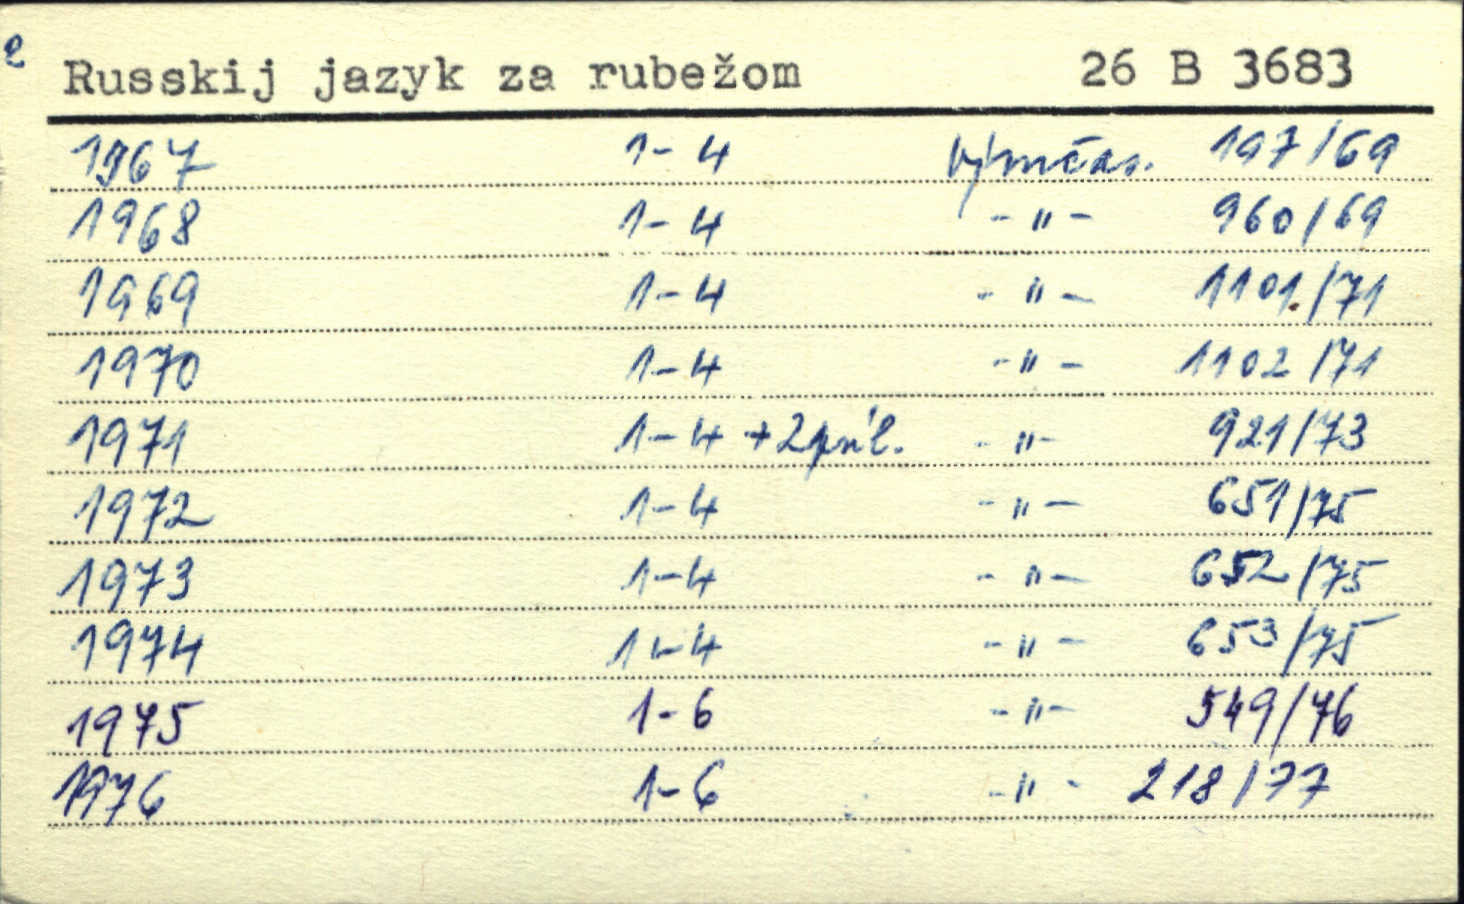 e
Russkij jazyk za rubežom 26 B 3683
1967 1-4 výmčas. 197/69
1968 1-4 -"- 960/69
1969 1-4 -"- 1101/71
1970 1-4 -"- 1102/71
1971 1-4 +2příl. -"- 921/73
1972 1-4 -"- 651/75
1973 1-4 -"- 652/75
1974 1-4 -"- 653/75
1975 1-6 -"- 549/76
1976 1-6 -"- 218/77